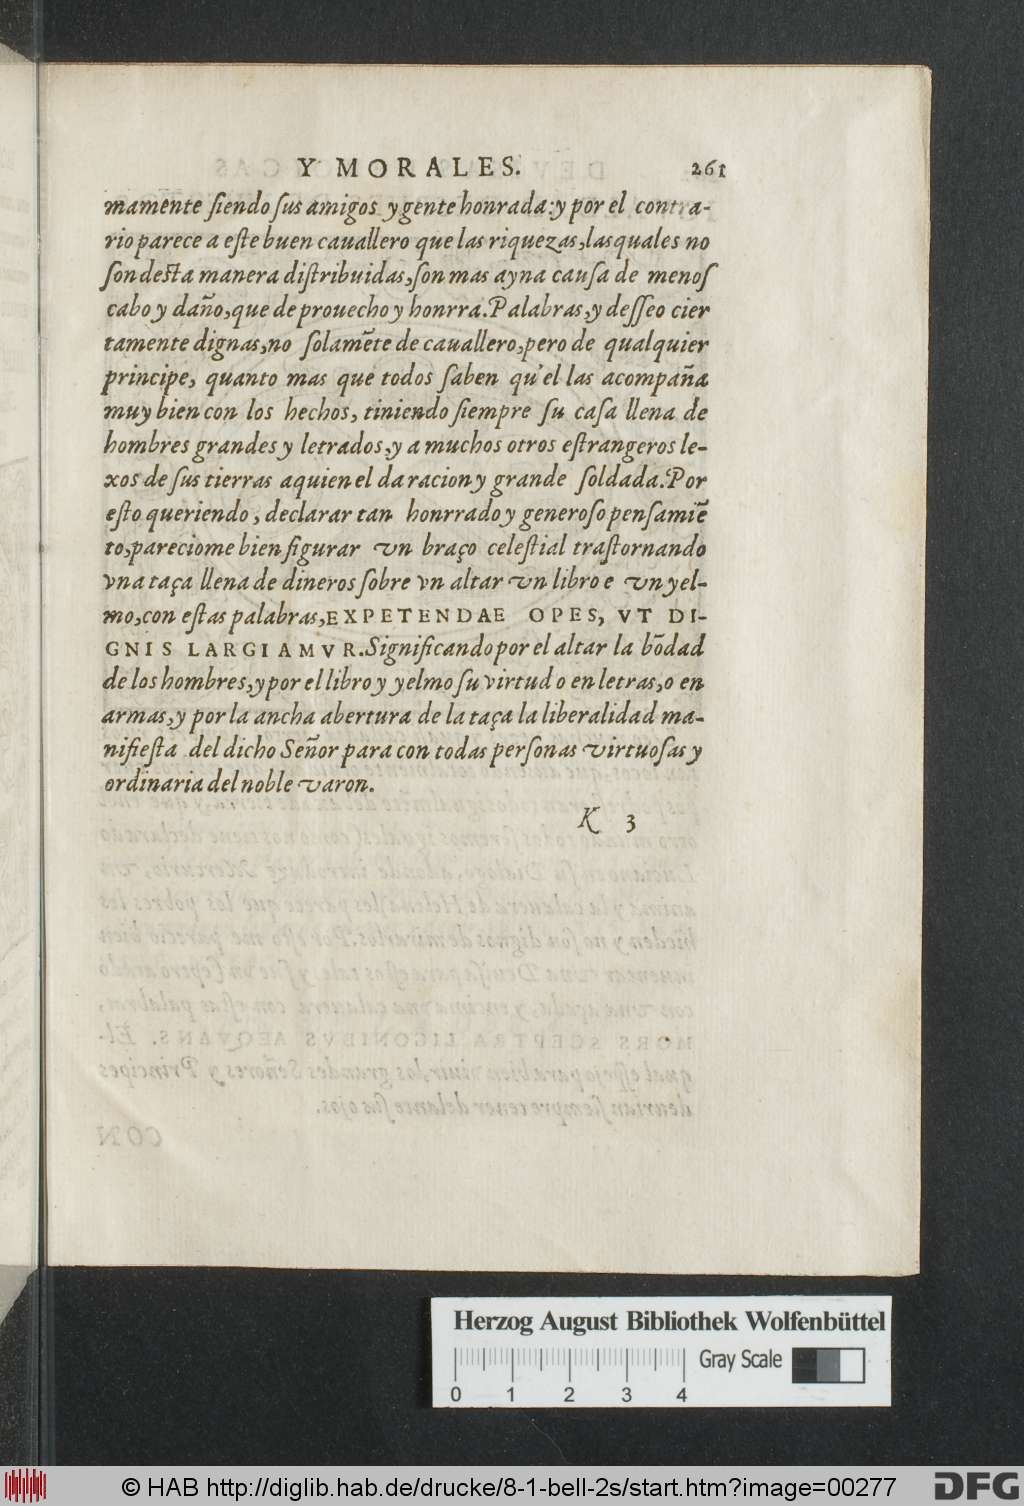 Y MORALES. 261
mamente ſiendo ſus amigos y gente honrada: y por el contra-
rio parece a eſte buen cauallero que las riquezas, las quales no
ſon deſta manera diſtribuidas, ſon mas ayna cauſa de menoſ
cabo y daño, que de prouecho y honrra. Palabras, y deſſeo cier
tamente dignas, no ſolamẽte de cauallero, pero de qualquier
principe, quanto mas que todos ſaben qu'el las acompaña
muy bien con los hechos, tiniendo ſiempre ſu caſa llena de
hombres grandes y letrados, y a muchos otros eſtrangeros le-
xos de ſus tierras a quien el da racion y grande ſoldada. Por
eſto queriendo, declarar tan honrrado y generoſo penſamiẽ
to, pareciome bien figurar vn braço celeſtial traſtornando
vna taça llena de dineros ſobre vn altar vn libro e vn yel-
mo, con eſtas palabras, EXPETENDAE OPES, VT DI-
GNIS LARGIAMVR. Significando por el altar la bõdad
de los hombres, y por el libro y yelmo ſu virtud o en letras, o en
armas, y por la ancha abertura de la taça la liberalidad ma-
nifieſta del dicho Señor para con todas perſonas virtuoſas y
ordinaria del noble varon.
K 3
Herzog August Bibliothek Wolfenbüttel
Gray Scale
0 1 2 3 4
© HAB http://diglib.hab.de/drucke/8-1-bell-2s/start.htm?image=00277
DFG